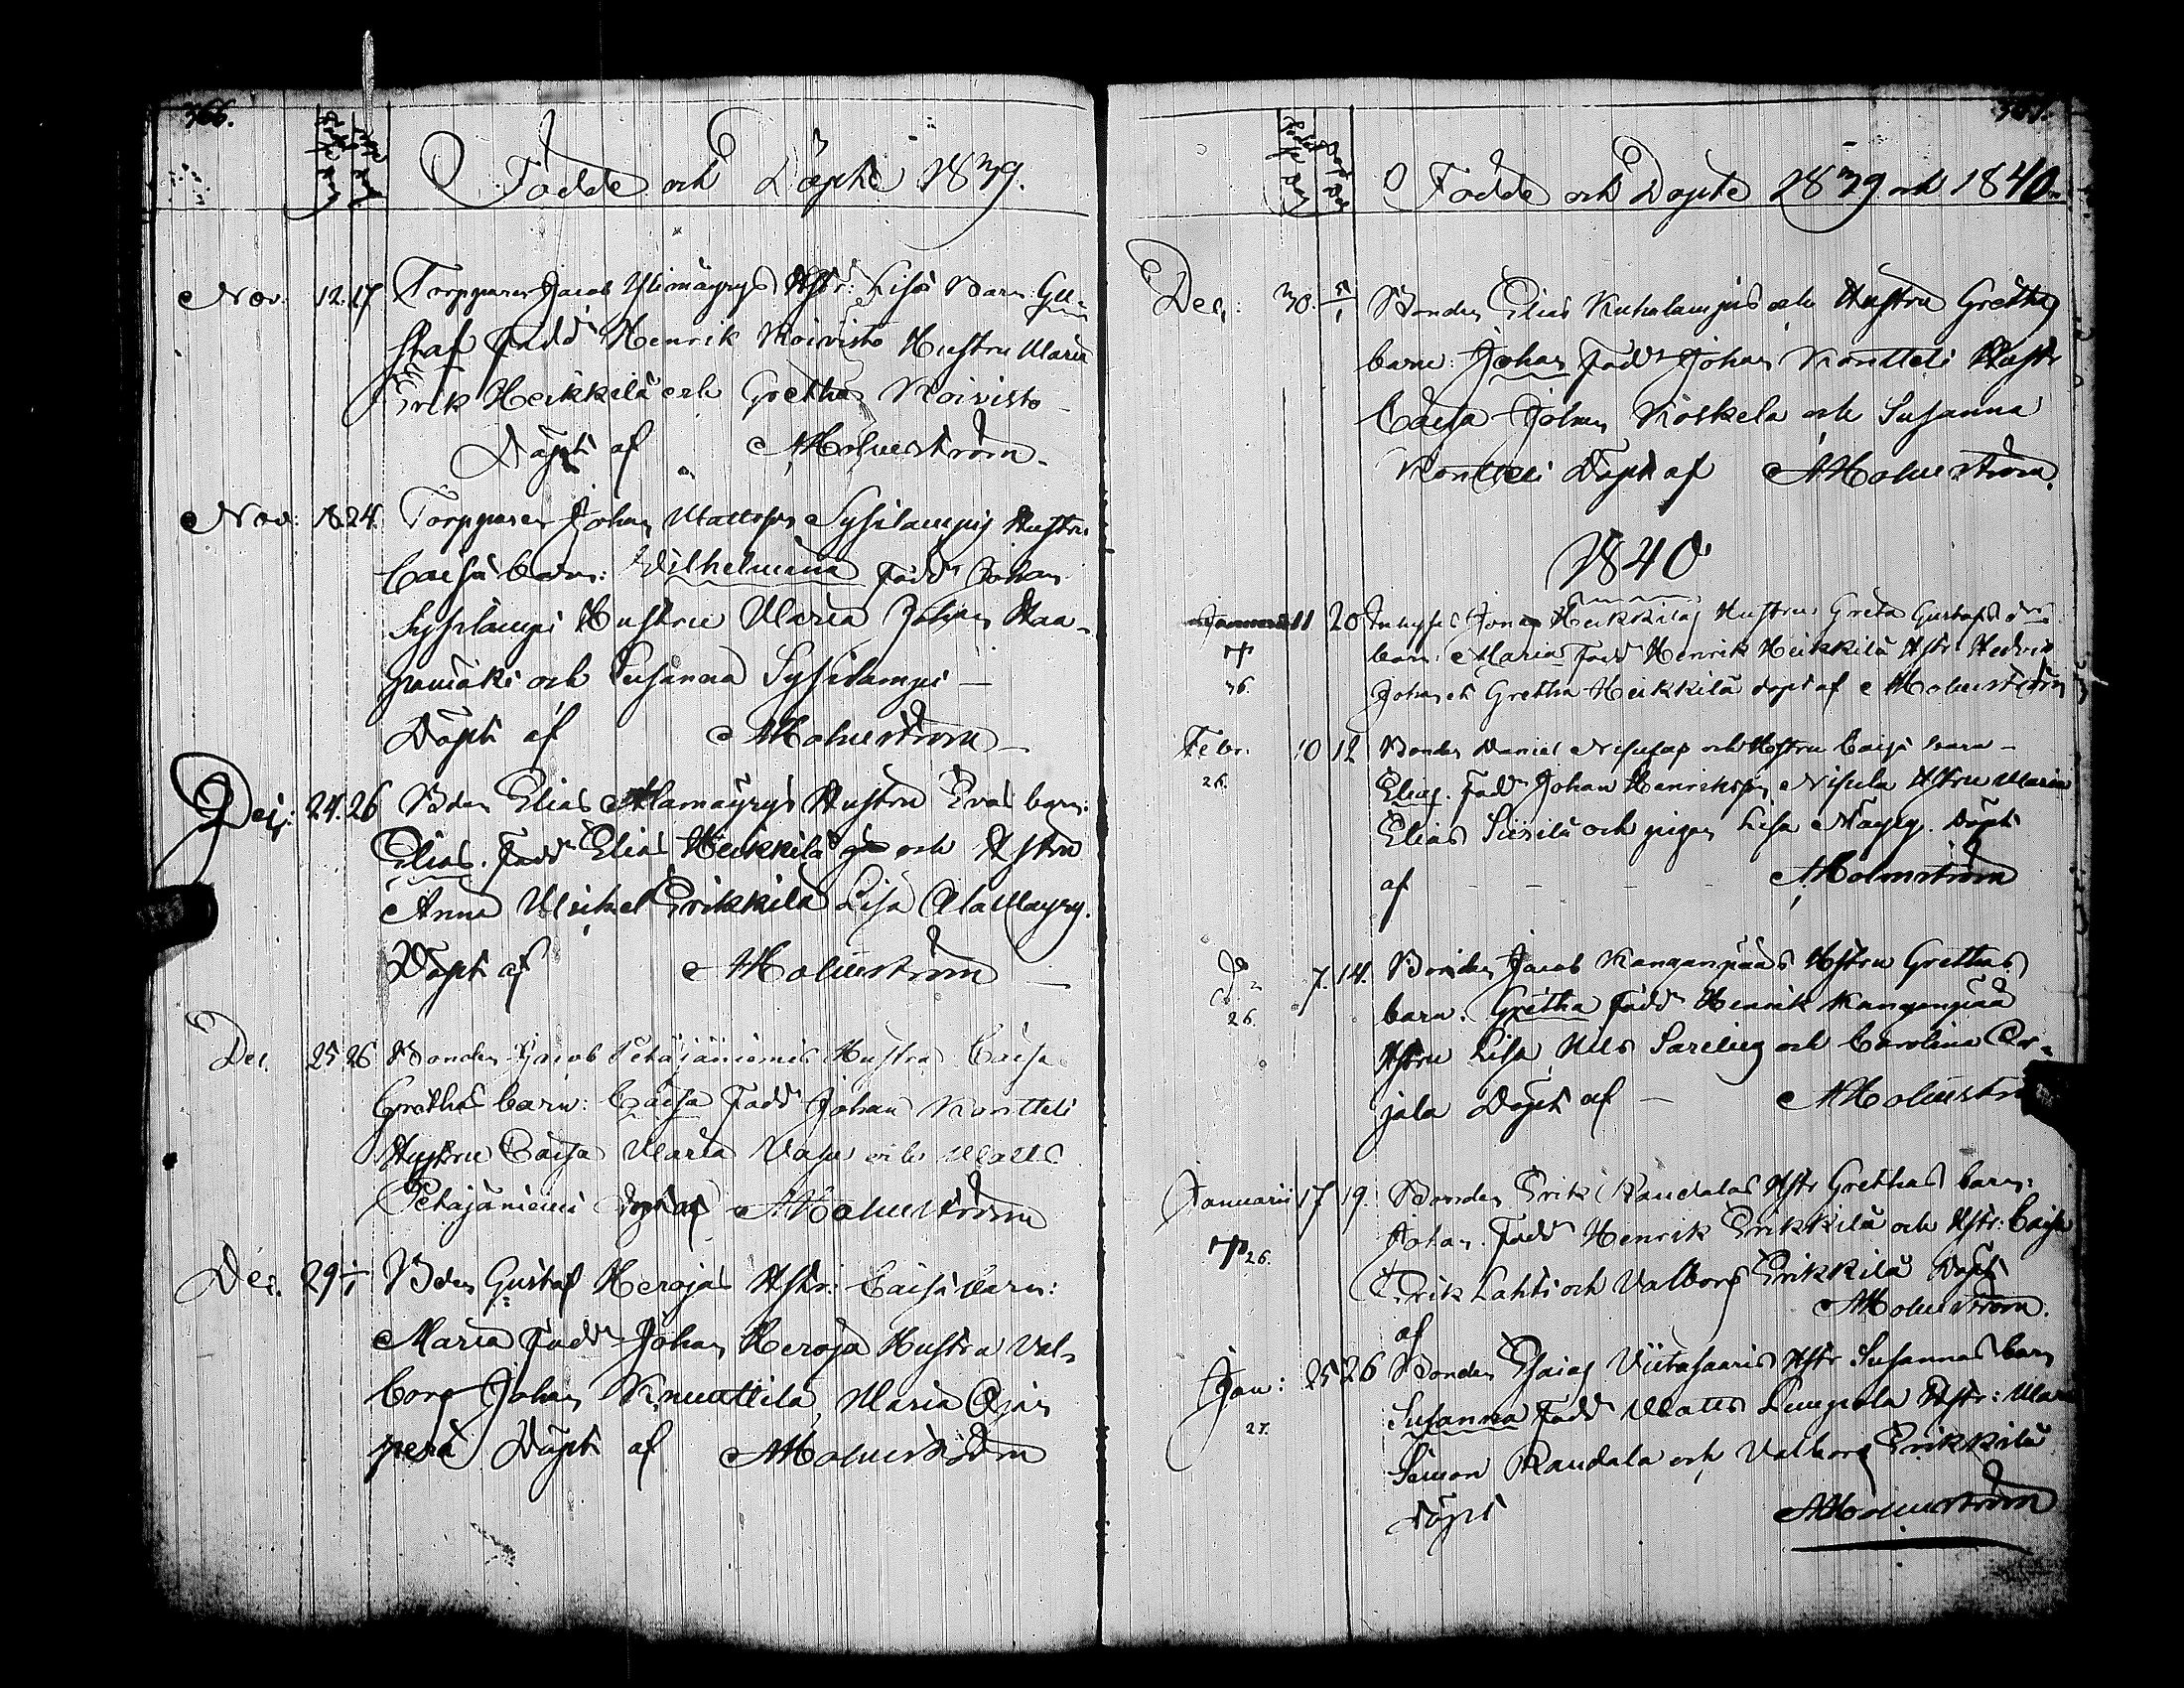 366.
Födde och Döpte 1839.
Nov: 12. 17 Torpparen Jacob Ylimäyrys Hstr: Lisas Barn: Gu-
staf Fadd. Henrik Koivisto Hustru Maria
Erik Heikkilä och Gretha Koivisto
Döpt af AHolmström.
Nov: 18. 24. Torpparen Johan Mattsson Sysilampis Hustru
Caisas barn: Wilhelmina Fadd. Johan
Sysilampi Hustru Maria Johan Haa-
pamäki och Susanna Sysilampi
Döpt af AHolmström
Dec: 24. 26 Bden Elias Alamäyrys Hustru Evas barn:
Elias. Fadd. Elias Heikkilä och Hstru
Anna Michel Erikkilä Lisa Alamäyry.
Döpt af AHolmström
Dec. 25 26 Bonden Jacob Petäjäniemis Hustru Caisa
Grethas barn: Caisa Fadd. Johan Kontteli
Hustru Caisa Maria och Matts
Petäjäniemi Döpt af AHolmström
Dec. 29 1/1 Bden Gustaf Herojas Hstr: Caisas barn:
Maria Fadd. Johan Heroja Hustru Val-
borg Johan Knuuttila, Maria Ojan
perä Döpt af AHolmström
Födde och Döpte 1839 och 1840.
Dec: 30. Bonden Elias Kuhalampis och Hustru Grethas
barn: Johan Fadd. Johan Kontteli Hustr
Caisa Johan Koskela och Susanna
Kontteli Döpt af AHolmström.
1840
Januarii 11 20 Inhyses Jonas Heikkiläs Hustrus Greta Gustafsdrs
barn: Maria Fadd. Henrik Heikkilä Hstr: Hedvig
Johan et Gretha Heikkilä döpt af AHolmström
36.
Febr: 10 12 Bonden Daniel och Hstru Caisas barn
26. Elias. Fadd. Johan Henriksson Nisula Hstru Maria
Elias Siirilä och pigan Lisa Mäyry. Döpt
af AHolmström
do 7. 14. Bonden Jacob Kanganpääs Hstru Grethas
26. barn. Gretha Fadd. Henrik Kanganpää
Hstru Lisa Nils Sareling och Carolina Or-
jala Döpt af AHolmströ
Januarii 17 19. Bonden Erik Raudalas Hstr Grethas barn:
26. Johan. Fadd. Henrik Erikkilä och Hstr: Caisa
Erik Lahti och Valborg Erikkilä Döpt
af AHolmström.
Jan: 25 26 Bonden Esaias Viitasaaris Hstr Susannas barn
27. Susanna Fadd. Matts Lumpola Hstr: Maria
Simon Raudala och Valborg Erikkilä
Döpt AHolmström